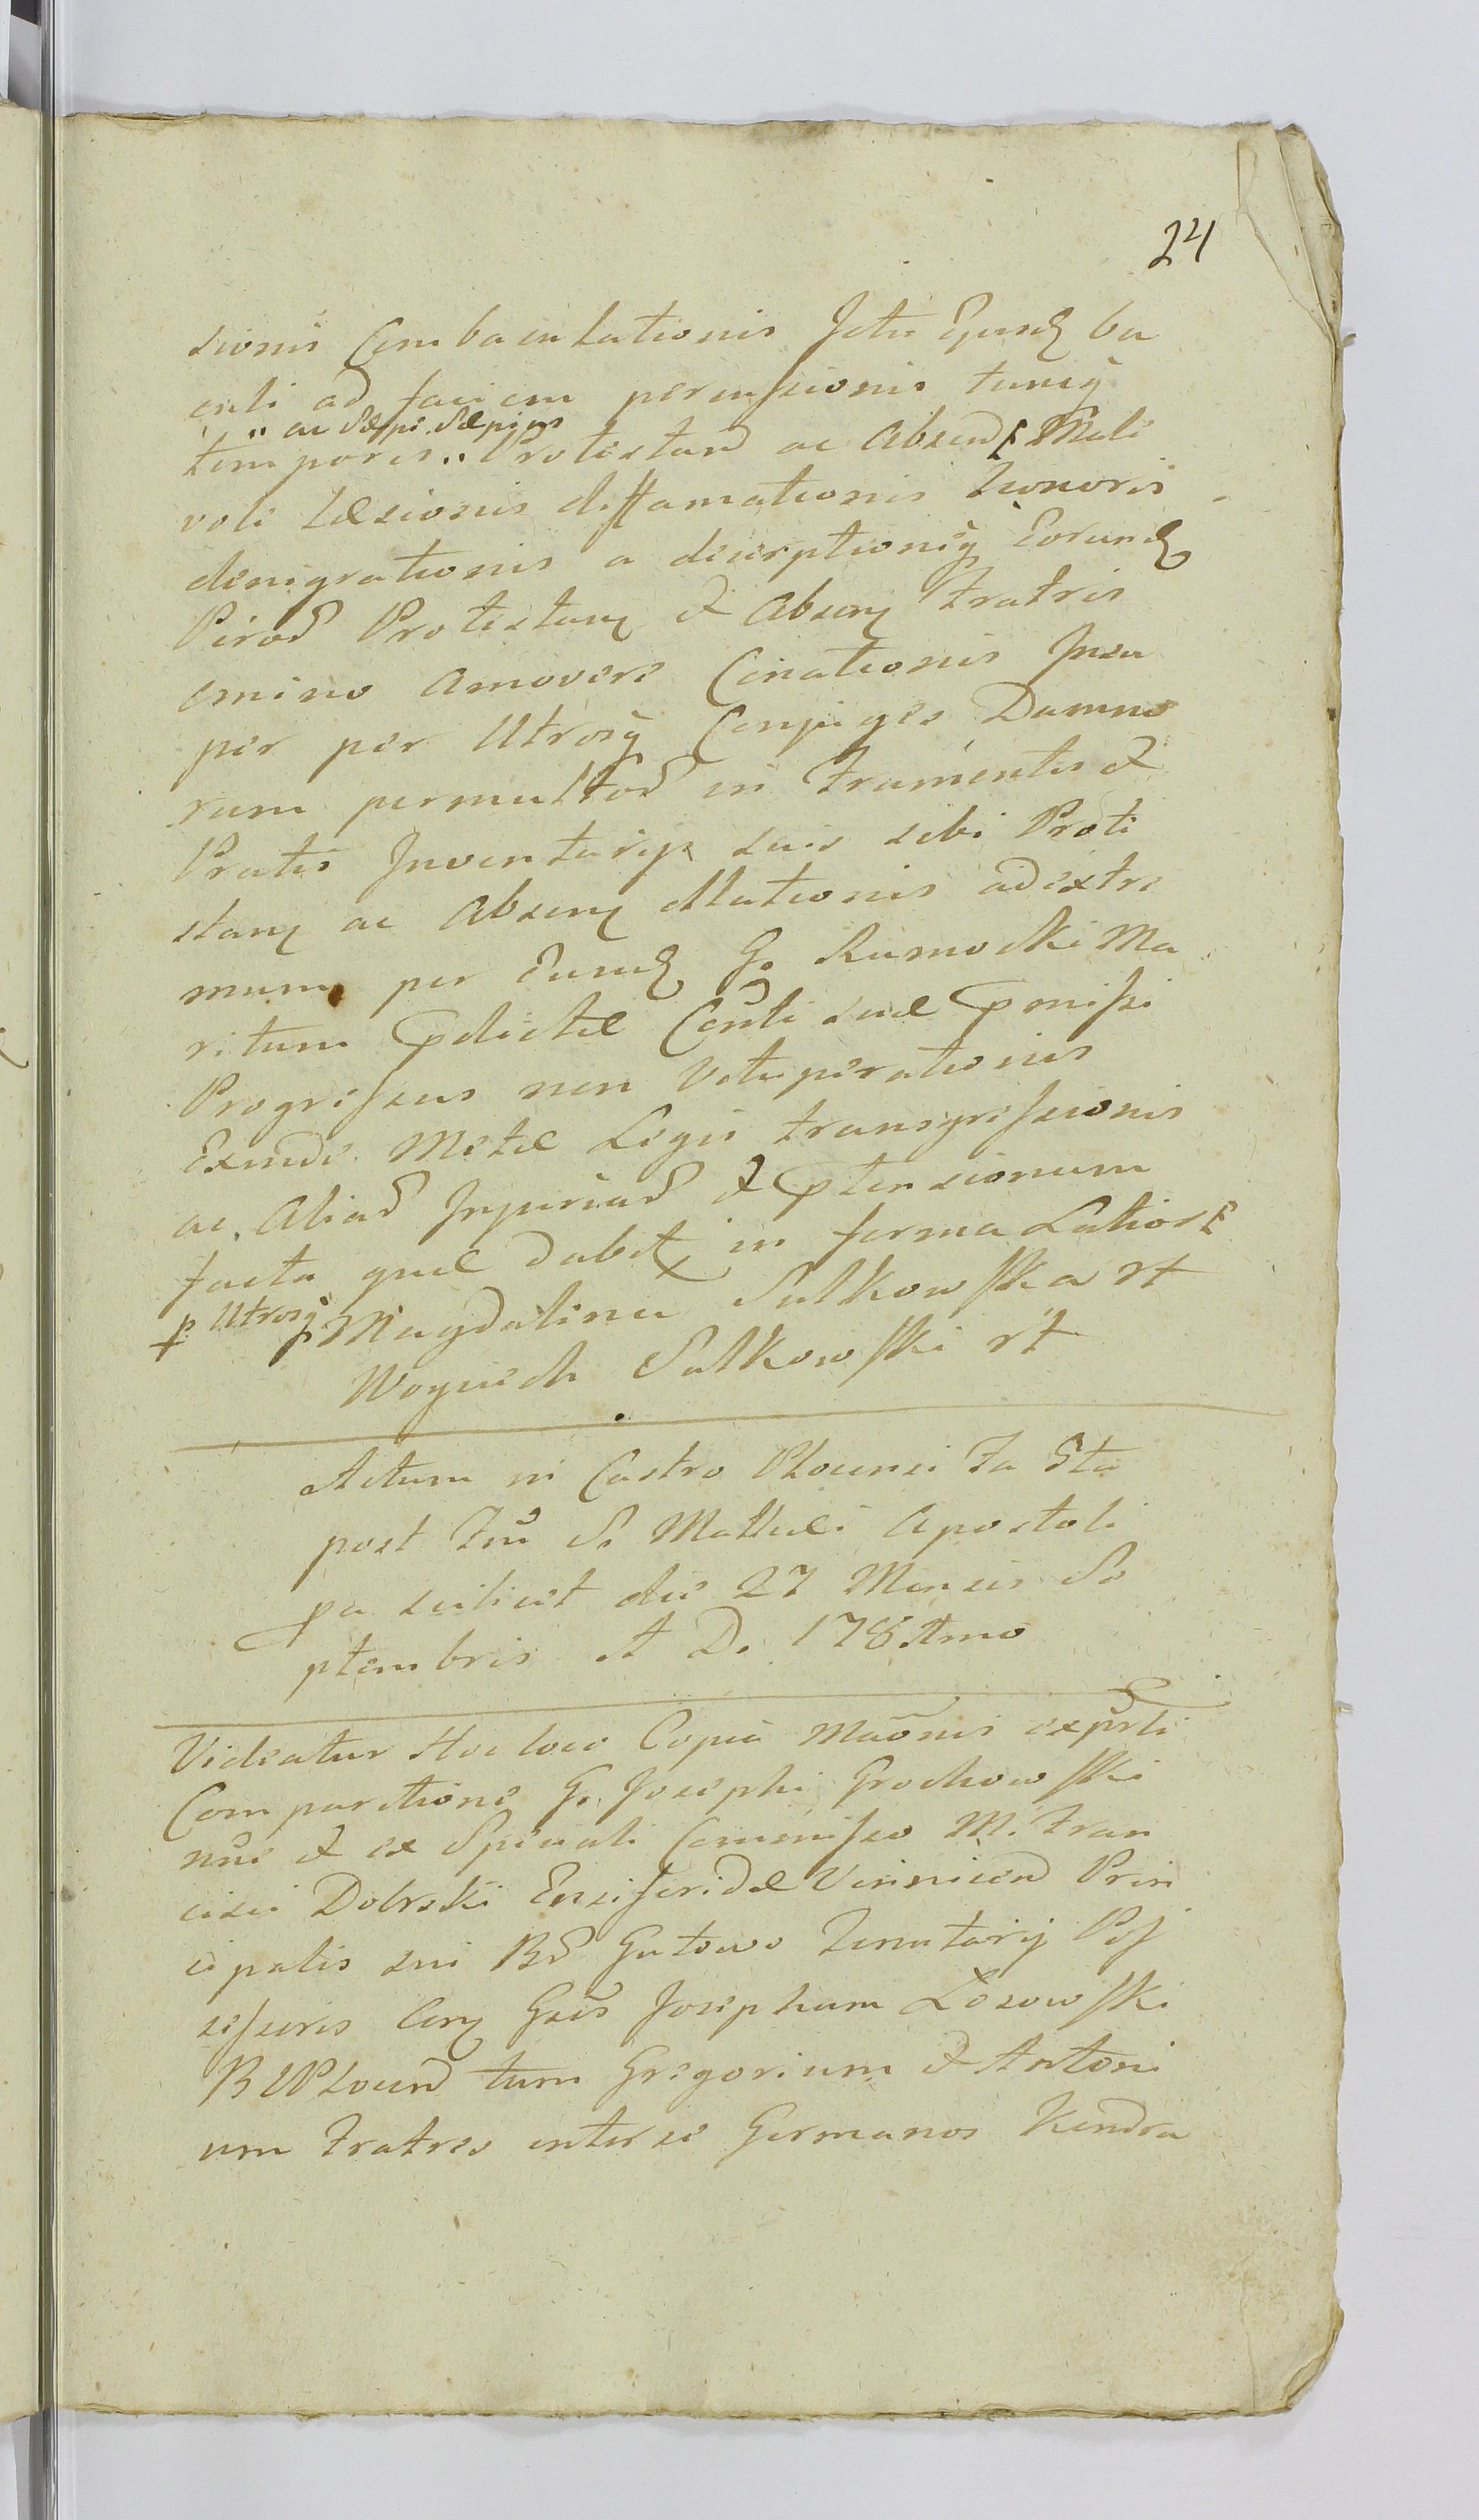 24
sionis Combaculationis Ictu Ejusd ba
culi ad faciem percussionis tuncq
ac sæpe sæpius
temporis Protestand ac Absend Mali
voli Læsionis diffamationis Honoris
denigrationis a descriptionisq Eorund
Protestan & Absen Fratris
omino Amovere Conationis Insu
per per Utrosq Conjuges Damno
rum permultor in Frumentis &
Pratis Inventarijs suis sibi Prote
stan ac Absen Illationis ad extre
mum per Eund G. Rumocki Ma
ritum pdictæ Consti suæ pmissi
Progressus non Vituperationis
Exinde Metæ Legis transgressionis
ac Aliar Injuriar & ptensionum
facta quæ dabit in forma Latiori
p Utrosq Magdalina Sulkowska rt
Woyciech Sulkowski rt
Actum in Castro Plocensi Fa 5ta
post Fm S. Matthæi Apostoli
pa scilicet die 27 Mensis Se
ptembris A D. 178
Videatur Hoc loco Copia
Comparitione G. Josephi Grochowski
& ex Speciali Commisso M. Fran
cisci Dobrski Ensiferidæ Prin
cipalis sui Br Gutowo Tenutarij Pos
sessoris Con Gsos Josephum Losowski
BCPlocen tum Gregorium & Antoni
um Fratres inter se Germanos Kendra